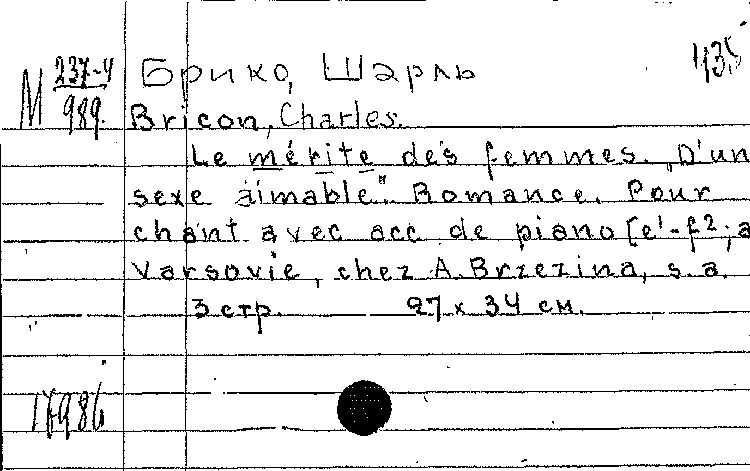 М 237-4/989. Брико, Шарль
Bricon, Charles.
Le mérite des femmes. „D'un
sexe aimable". Romance. Pour
chant avec acc. de piano [e¹-f²; a
Varsovie, chez A. Brzezina, s.a.
3 стр. 27 x 34 см.